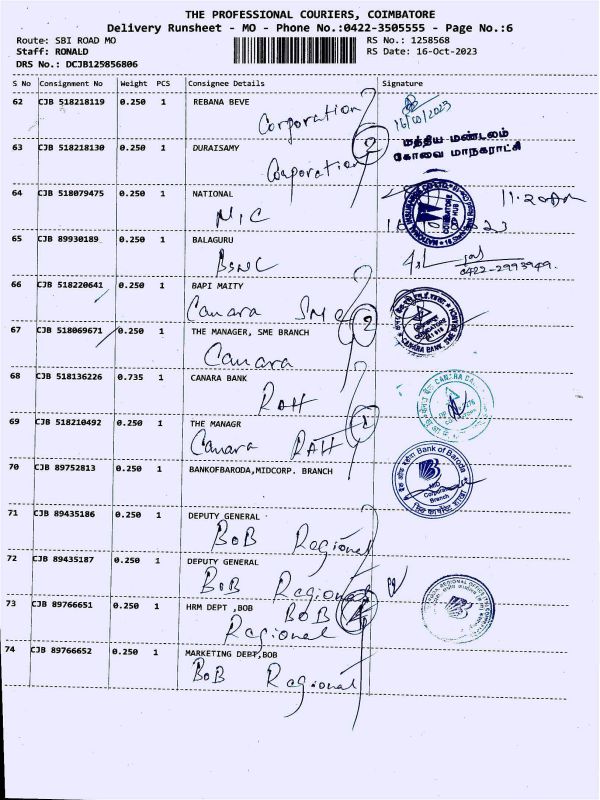 THE PROFESSIONAL COURIERS, COIMBATORE
Delivery Runsheet - MO - Phone No.:0422-3505555 - Page No.:6
Route: SBI ROAD MO RS No.: 1258568
Staff: RONALD RS Date: 16-Oct-2023
DRS No.: DCJB125856806
S No Consignment No Weight PCS Consignee Details Signature
62 CJB 518218119 0.250 1 REBANA BEVE
Corporation 16/10/2023
63 CJB 518218130 0.250 1 DURAISAMY மத்திய மண்டலம்
Corporation 2 கோவை மாநகராட்சி
64 CJB 518079475 0.250 1 NATIONAL 11.20am
NIC
65 CJB 89930189 0.250 1 BALAGURU
BSNL 0422-2993949.
66 CJB 518220641 0.250 1 BAPI MAITY
Canara SME 2
67 CJB 518069671 0.250 1 THE MANAGER, SME BRANCH
Canara
68 CJB 518136226 0.735 1 CANARA BANK
RAH
69 CJB 518210492 0.250 1 THE MANAGR
Canara RAH
70 CJB 89752813 0.250 1 BANKOFBARODA,MIDCORP. BRANCH Bank of Baroda
MID
Corporate
Branch
71 CJB 89435186 0.250 1 DEPUTY GENERAL
BOB Regional
72 CJB 89435187 0.250 1 DEPUTY GENERAL
BOB Regional
73 CJB 89766651 0.250 1 HRM DEPT ,BOB BOB 4
Regional
74 CJB 89766652 0.250 1 MARKETING DEPT,BOB
BOB Regional